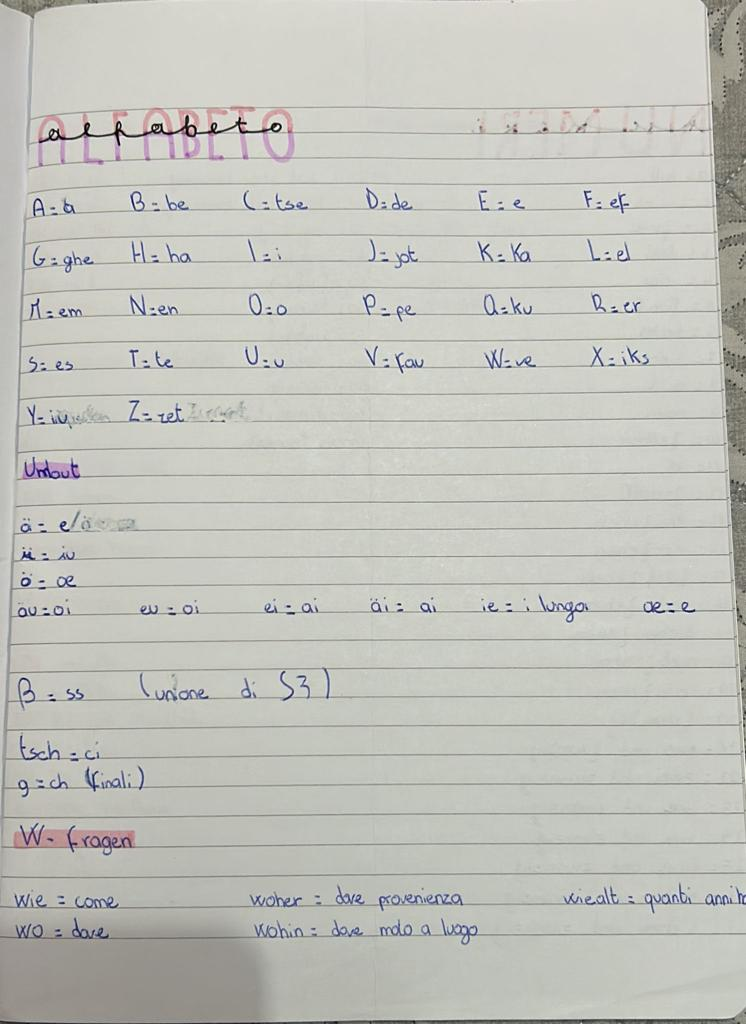 ALFABETO
alfabeto
A = a B = be C = tse D = de E = e F = ef
G = ghe H = ha I = i J = jot K = Ka L = el
M = em N = en O = o P = pe Q = ku R = er
S = es T = te U = u V = fau W = ve X = iks
Y = Z = zet
Umlaut
ä = e/
ü = iu
ö = oe
äu = oi eu = oi ei = ai äi = ai ie = i lungo oe = e
ß = ss (unione di S3)
tsch = ci
g = ch (finali)
W- fragen
wie = come woher = dove provenienza wiealt = quanti anni
wo = dove wohin = dove moto a luogo